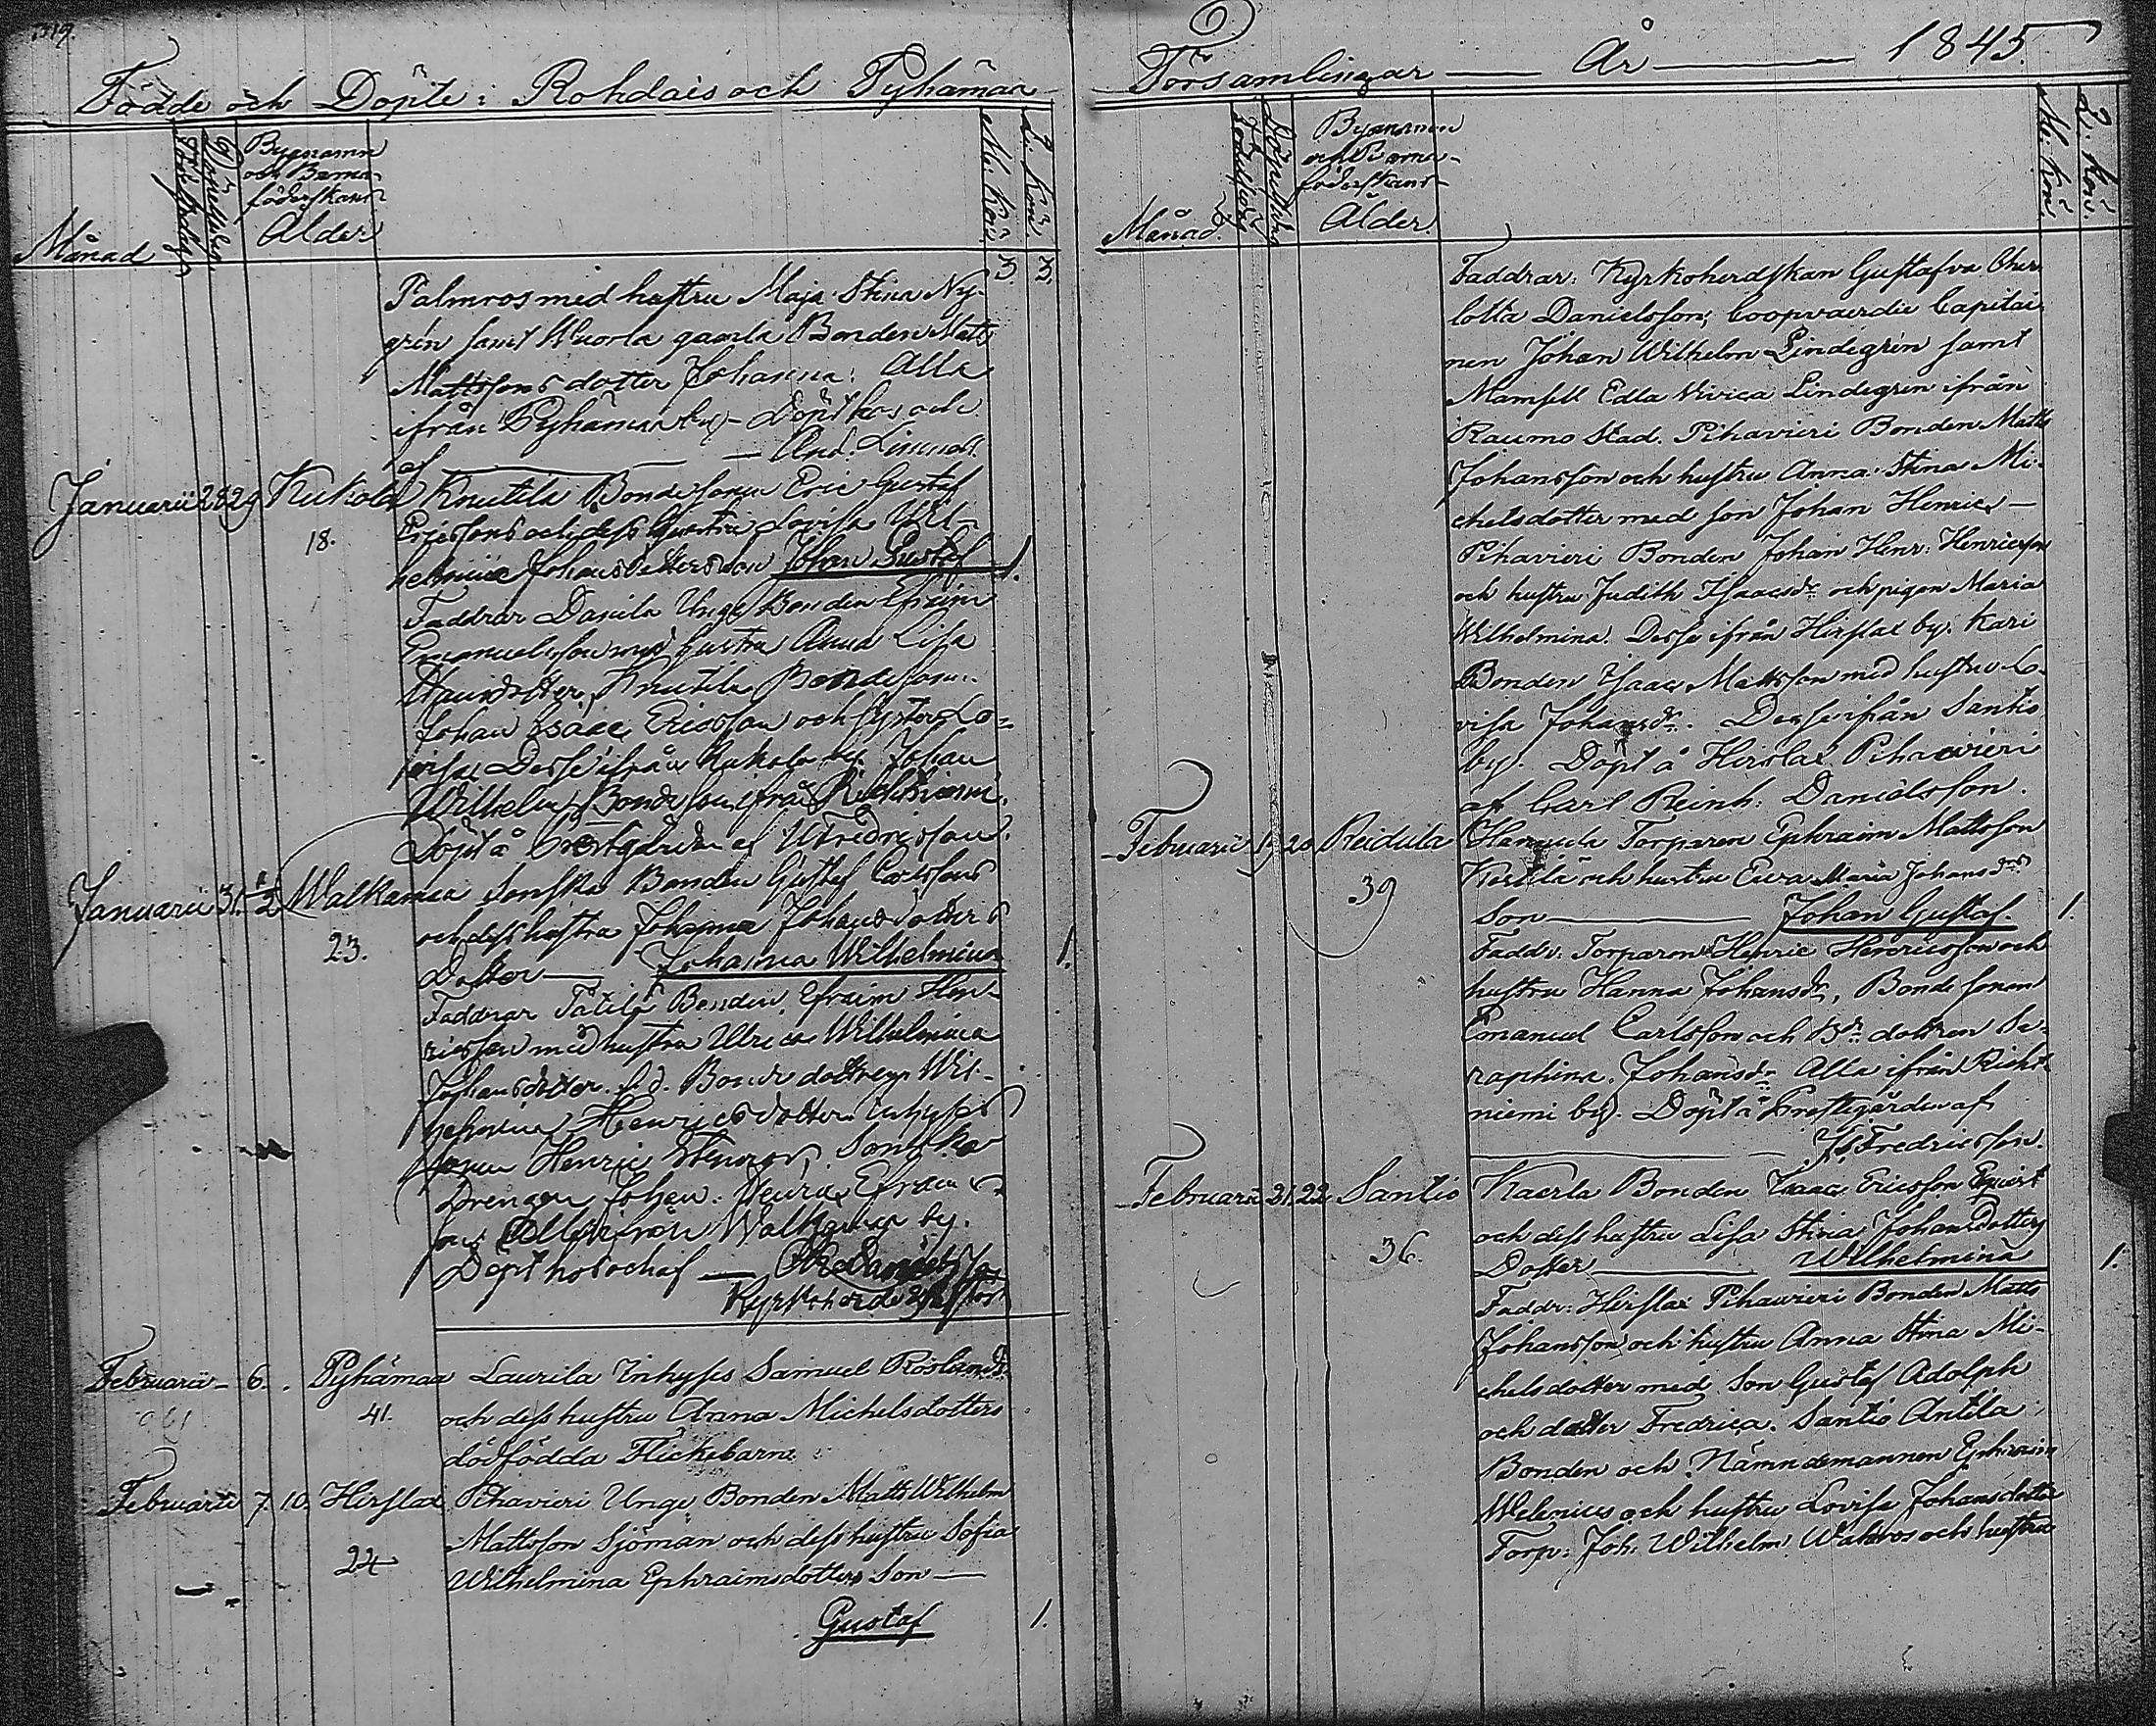 Födde och Döpte i Rohdais och Pyhämaa
Församlingar — År — 1845.
Månad
Födelsedag
Döpelsedag
Bynamn
och Barna-
föderskans
Ålder
M. Kön
Q. Kön
Palmros med hustru Maja Stina Ny-
grén samt Wuorla gamla Bonden Matts
Mattssons dotter Johanna. Alla
ifrån Pyhämaa by — Döpt hos och
af — And.
Januarii 28 29 Kukola Knutila Bondesonen Eric Gustaf
18. Ericssons och dess hustru Lovisa Wil-
helmina Johansdotters son Johan Gustaf 1.
Faddrar Danila Unge Bonden Efraim
Emanuelsson med hustru Anna Lisa
Knutila Bondesonen
Johan Isaac Ericsson och syster Lo-
visa. Desse ifrån Kukola by. Johan
Wilhelm Bondeson ifrån
Döpt å Prestgården af Fredricsson.
Januarii 31. 2 Walkamaa Sonska Bonden Gustaf Carlssons
23. och dess hustru Johanna Johansdotters
Dotter — Johanna Wilhelmina 1.
Faddrar Tätilä Bonden Efraim Hen-
ricsson med hustru Ulrica Wilhelmina
Johansdotter. Bonde dottren Wil-
helmina Henricsdotter inhyses
sonen Henric Sonska
Drengen Johan Henric Efraims
son Alla ifrån Walkamaa by.
Döpt hos och af — Danielsson
Kyrkoherde
Februarii 6. Pyhämaa Laurila Inhyses Samuel Roslunds
41. och dess hustru Anna Michelsdotters
dödfödda Flickebarn
Februarii 7. 10. Hirslax Pihavieri Unge Bonden Matts Wilhelm
24 Mattsson Sjöman och dess hustru Sofia
Wilhelmina Ephraimsdotters Son —
Gustaf 1.
Månad.
Födelsedag
Döpelsedag
Bynamn
och Barna-
föderskans
Ålder.
M. Kön.
Q. Kön.
Faddrar: Kyrkoherdskan Gustafva Char-
lotta Danielsson, Coopvaerdie Capitai-
nen Johan Wilhelm Lindegrén samt
Mamsell Edla Vivica Lindegrén ifrån
Raumo Stad. Pihavieri Bonden Matts
Johansson och hustru Anna Stina Mi-
chelsdotter med son Johan Henric —
Pihavieri Bonden Johan Henr: Henricsson
och hustru Judith Isaacsdr och pigan Maria
Wilhelmina. Desse ifrån Hirslax by. Kari
Bonden Isaac Mattsson med hustru Lo-
visa Johansdr. Desse ifrån Santio
by. Döpt å Hirslax Pihavieri
af Carl Reinh: Danielsson.
Februarii 19 20 Reidula Hannula Torparen Ephraim Mattsson
39 Kestilä och hustru Eva Maria Johansdrs
Son — Johan Gustaf. 1.
Faddr: Torparen Henric Henricsson och
hustru Hanna Johansdr, Bondesonen
Emanuel Carlsson och Bde dottren Se-
raphina Johansdr Alla ifrån Riiht-
niemi by. Döpt å Prestegården af
Js Fredricsson.
Februarii 21. 22 Santio Kaerla Bonden Isaac Ericsson Eqvist
36. och dess hustru Lisa Stina Johansdotters
Dotter — Wilhelmina 1.
Faddr: Hirslax Pihavieri Bonden Matts
Johansson och hustru Anna Stina Mi-
chelsdotter med Son Gustaf Adolph
och dotter Fredrica. Santio Antila
Bonden och Nämndemannen Ephraim
Welenius och hustru Lovisa Johansdotter
Torp: Joh: Wilhelm Walkros och hustru